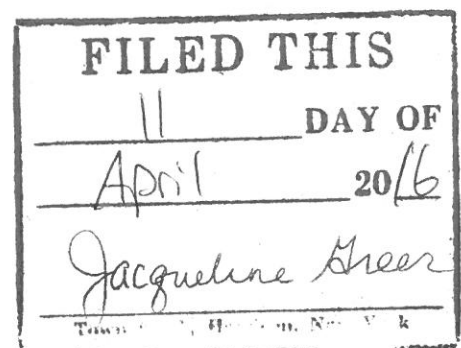 FILED THIS
11 DAY OF
April 2016
Jacqueline Greer
Town New York